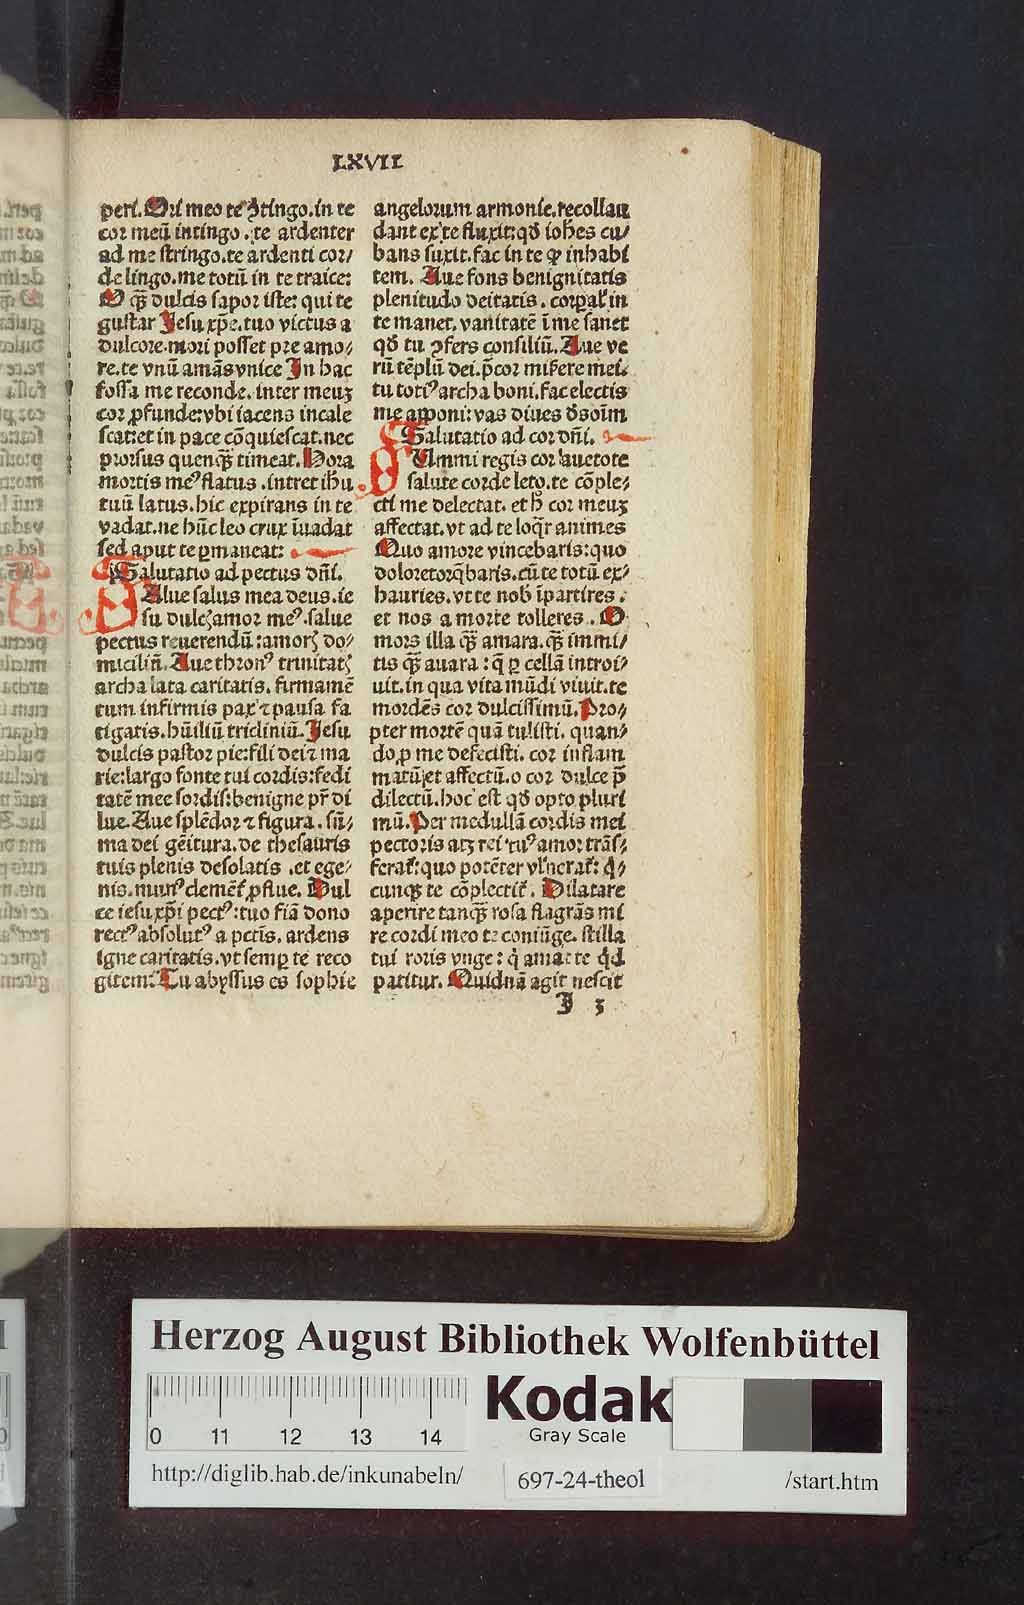 LXVII
peri. Ori meo te ꝯstingo. in te
cor meū intingo. te ardenter
ad me stringo. te ardenti cor/
de lingo. me totū in te traice:
O qꝫ dulcis sapor iste: qui te
gustar Jesu xp̄e. tuo victus a
dulcore. mori posset pre amo/
re. te vnū amās vnice In hac
fossa me reconde. inter meuꝫ
cor ꝓfunde: vbi iacens incale
scat: et in pace cōquiescat. nec
prorsus quenqꝫ timeat. Hora
mortis meꝰ flatus. intret ihu
tuū latus. hic expirans in te
vadat. ne hūc leo crux īuadat
sed aput te ꝑmaneat:
Salutatio ad pectus dn̄i.
SAlue salus mea deus. ie
su dulcꝫ amor meꝰ. salue
pectus reuerendū: amorꝫ do/
miciliū. Aue thronꝰ trinitatꝫ
archa lata caritatis. firmamē
tum infirmis pax ⁊ pausa fa
tigatis. hūiliū tricliniū. Jesu
dulcis pastor pie: fili dei ⁊ ma
rie: largo fonte tui cordis: fedi
tatē mee sordis: benigne pr̄ di
lue. Aue splēdor ⁊ figura. sū/
ma dei gēitura. de thesauris
tuis plenis desolatis. et ege/
nis. munꝰ clemēt̕ ꝓflue. Dul
ce iesu xp̄i pectꝰ: tuo fiā dono
rectꝰ absolutꝰ a pctīs. ardens
igne caritatis. vt semꝑ te reco
gitem: Tu abyssus es sophie
angelorum armonie. te collau
dant ex te fluxit: qd̄ iohēs cu/
bans suxit. fac in te ꝙ inhabi
tem. Aue fons benignitatis
plenitudo deitatis. corꝑal̕ in
te manet. vanitatē ī me sanet
qd̄ tu ꝯfers consiliū. Aue ve
rū tēplū dei. p̄cor misere mei.
tu totiꝰ archa boni. fac electis
me apponi: vas diues ds̄ oīm
Salutatio ad cor dn̄i.
SUmmi regis cor aueto te
salute corde leto. te cōple/
cti me delectat. et h̄ cor meuꝫ
affectat. vt ad te loqr̄ animes
Quo amore vincebaris: quo
dolore torq̄baris. cū te totū ex/
hauries. vt te nob̄ īpartires.
et nos a morte tolleres. O
mors illa qꝫ amara. qꝫ immi/
tis qꝫ auara: q̄ ꝑ cellā introi/
uit. in qua vita mūdi viuit. te
mordēs cor dulcissimū. Pro/
pter mortē quā tulisti. quan/
do ꝓ me defecisti. cor inflam
matū et affectū. o cor dulce p̄
dilectū. hoc est qd̄ opto pluri
mū. Per medullā cordis mei
pectoris atꝫ rei tuꝰ amor trās/
ferat̕: quo potēter vl̄nerat̕: q̄/
cunqꝫ te cōplectit̕. Dilatare
aperire tanqꝫ rosa flagrās mi
re cordi meo te coniūge. stilla
tui roris vnge: q̇ amat te qd̄
patitur. Quidnā agit nescit
J 3
Herzog August Bibliothek Wolfenbüttel
0 11 12 13 14
Kodak
Gray Scale
http://diglib.hab.de/inkunabeln/
697-24-theol
/start.htm